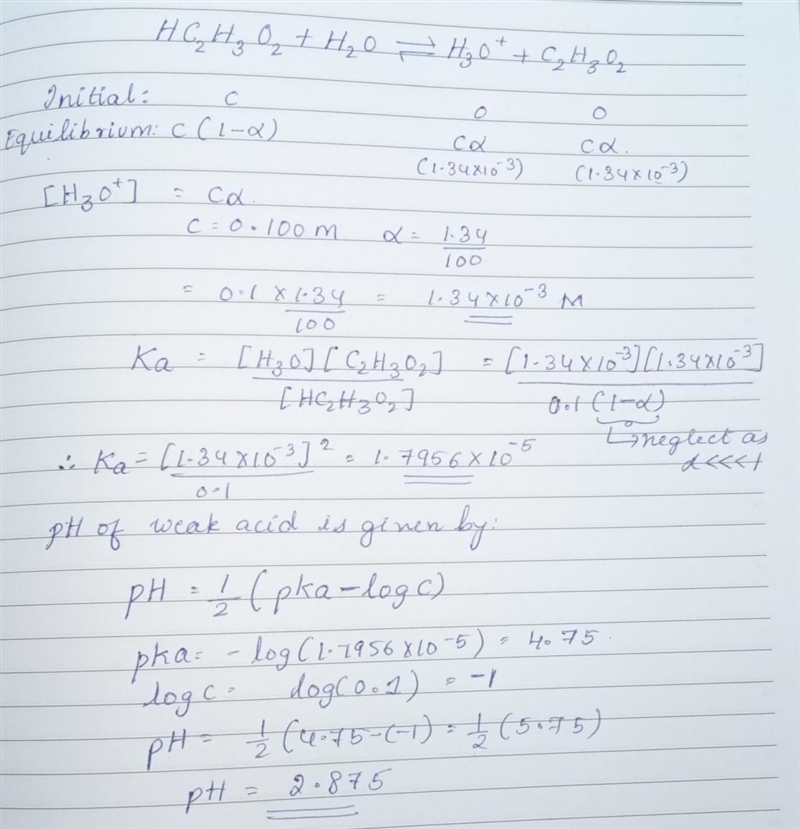 HC₂H₃O₂ + H₂O ⇌ H₃O⁺ + C₂H₃O₂
Initial: C 0 0
Equilibrium: C(1-α) Cα Cα.
(1.34×10⁻³) (1.34×10⁻³)
[H₃O⁺] = Cα.
C = 0.100 M α = 1.34/100
= 0.1 × 1.34/100 = 1.34×10⁻³ M
Ka = [H₃O][C₂H₃O₂]/[HC₂H₃O₂] = [1.34×10⁻³][1.34×10⁻³]/0.1(1-α)
↳ neglect as
α<<<<1
∴ Ka = [1.34×10⁻³]²/0.1 = 1.7956×10⁻⁵
pH of weak acid is given by:
pH = 1/2 (pka - log C)
pka = -log(1.7956×10⁻⁵) = 4.75.
log C = log(0.1) = -1
pH = 1/2 (4.75-(-1) = 1/2 (5.75)
pH = 2.875